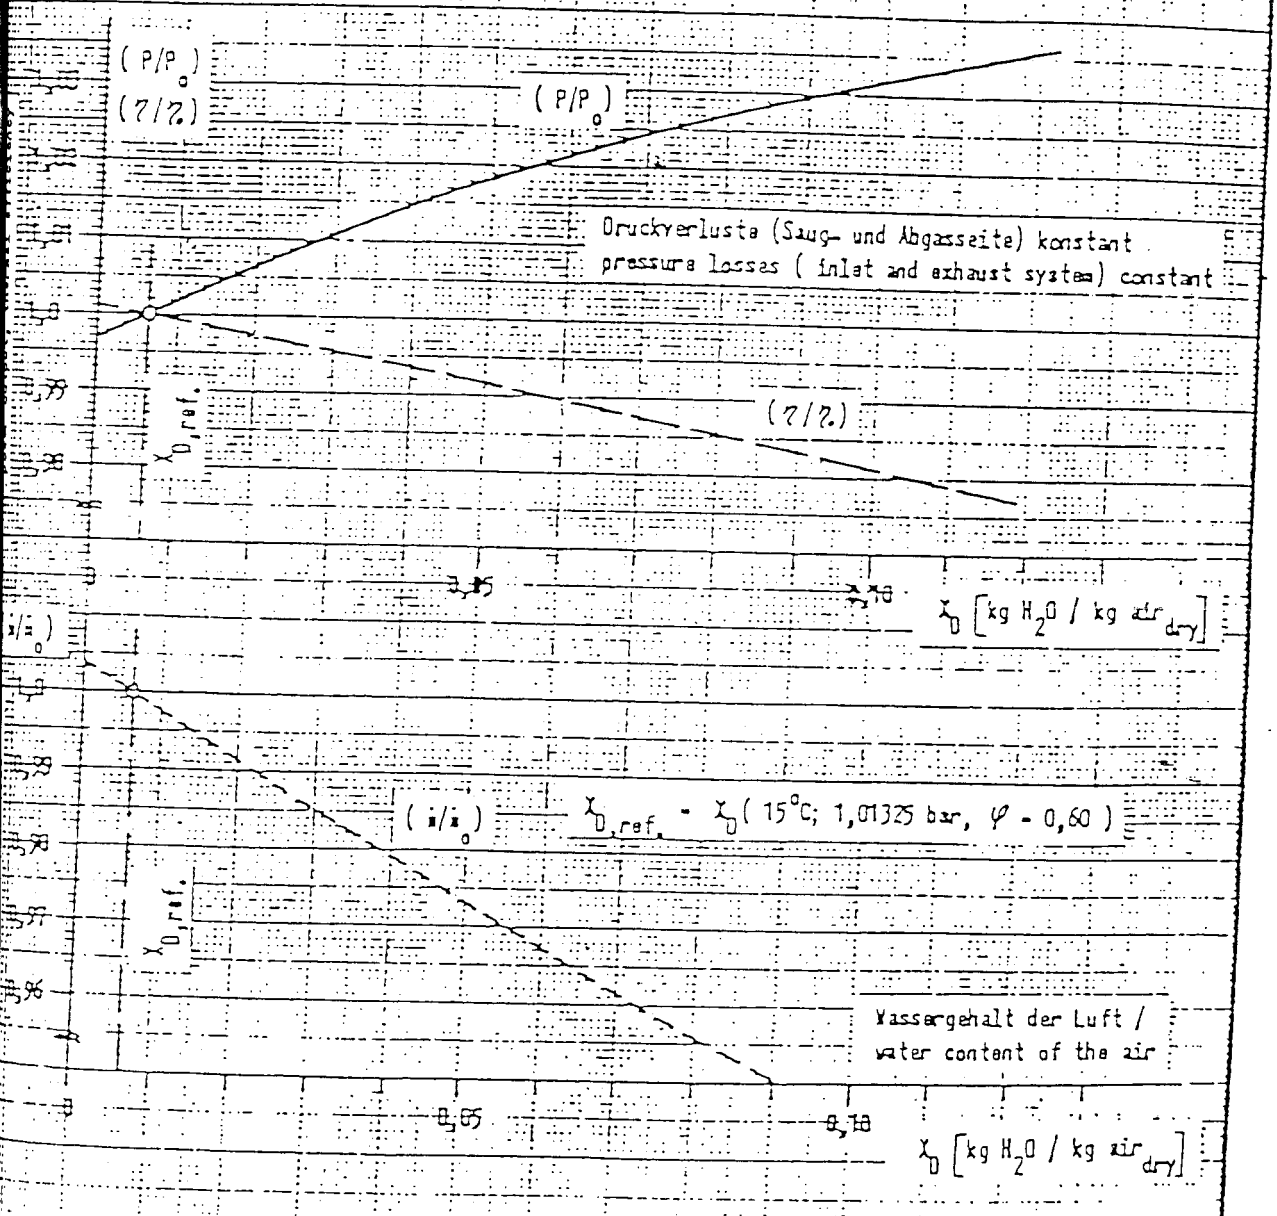 ( P/P₀ )
(η/η₀)
( P/P₀ )
Druckverluste (Saug- und Abgasseite) konstant
pressure losses ( inlet and exhaust system) constant
X_D,ref.
(η/η₀)
0,99
0,98
0
0,05
0,10
X_D [kg H₂O / kg air dry]
(ṁ/ṁ₀)
1,0
0,99
0,98
(ṁ/ṁ₀)
X_D,ref. - X_D( 15°C; 1,01325 bar, φ - 0,60 )
X_D,ref.
0,97
0,96
Wassergehalt der Luft /
water content of the air
0
0,05
0,10
X_D [kg H₂O / kg air dry]